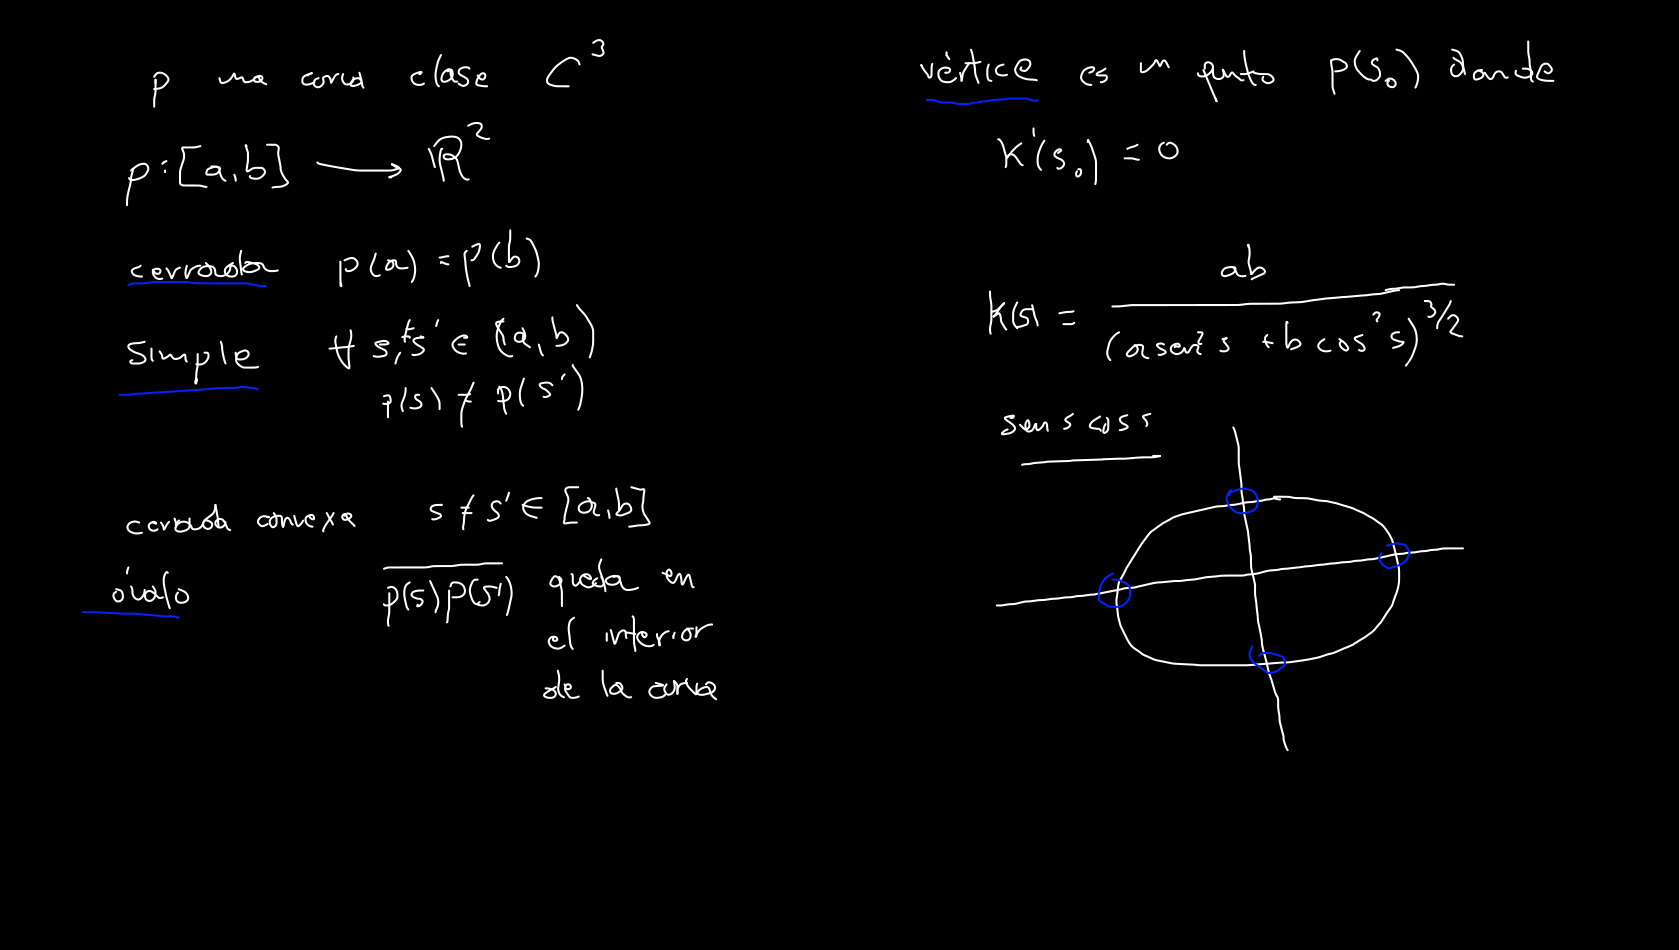 p una curva clase C³
p:[a,b] ⟶ ℝ²
cerrada p(a) = p(b)
Simple ∀ s,≠s' ∈ (a,b)
p(s) ≠ p(s')
cerrada convexa s ≠ s' ∈ [a,b]
óvalo p(s)p(s') queda en
el interior
de la curva
vértice es un punto p(s₀) donde
K'(s₀) = 0
K(s) = ab / (a sen² s + b cos² s)^3/2
sen s cos s